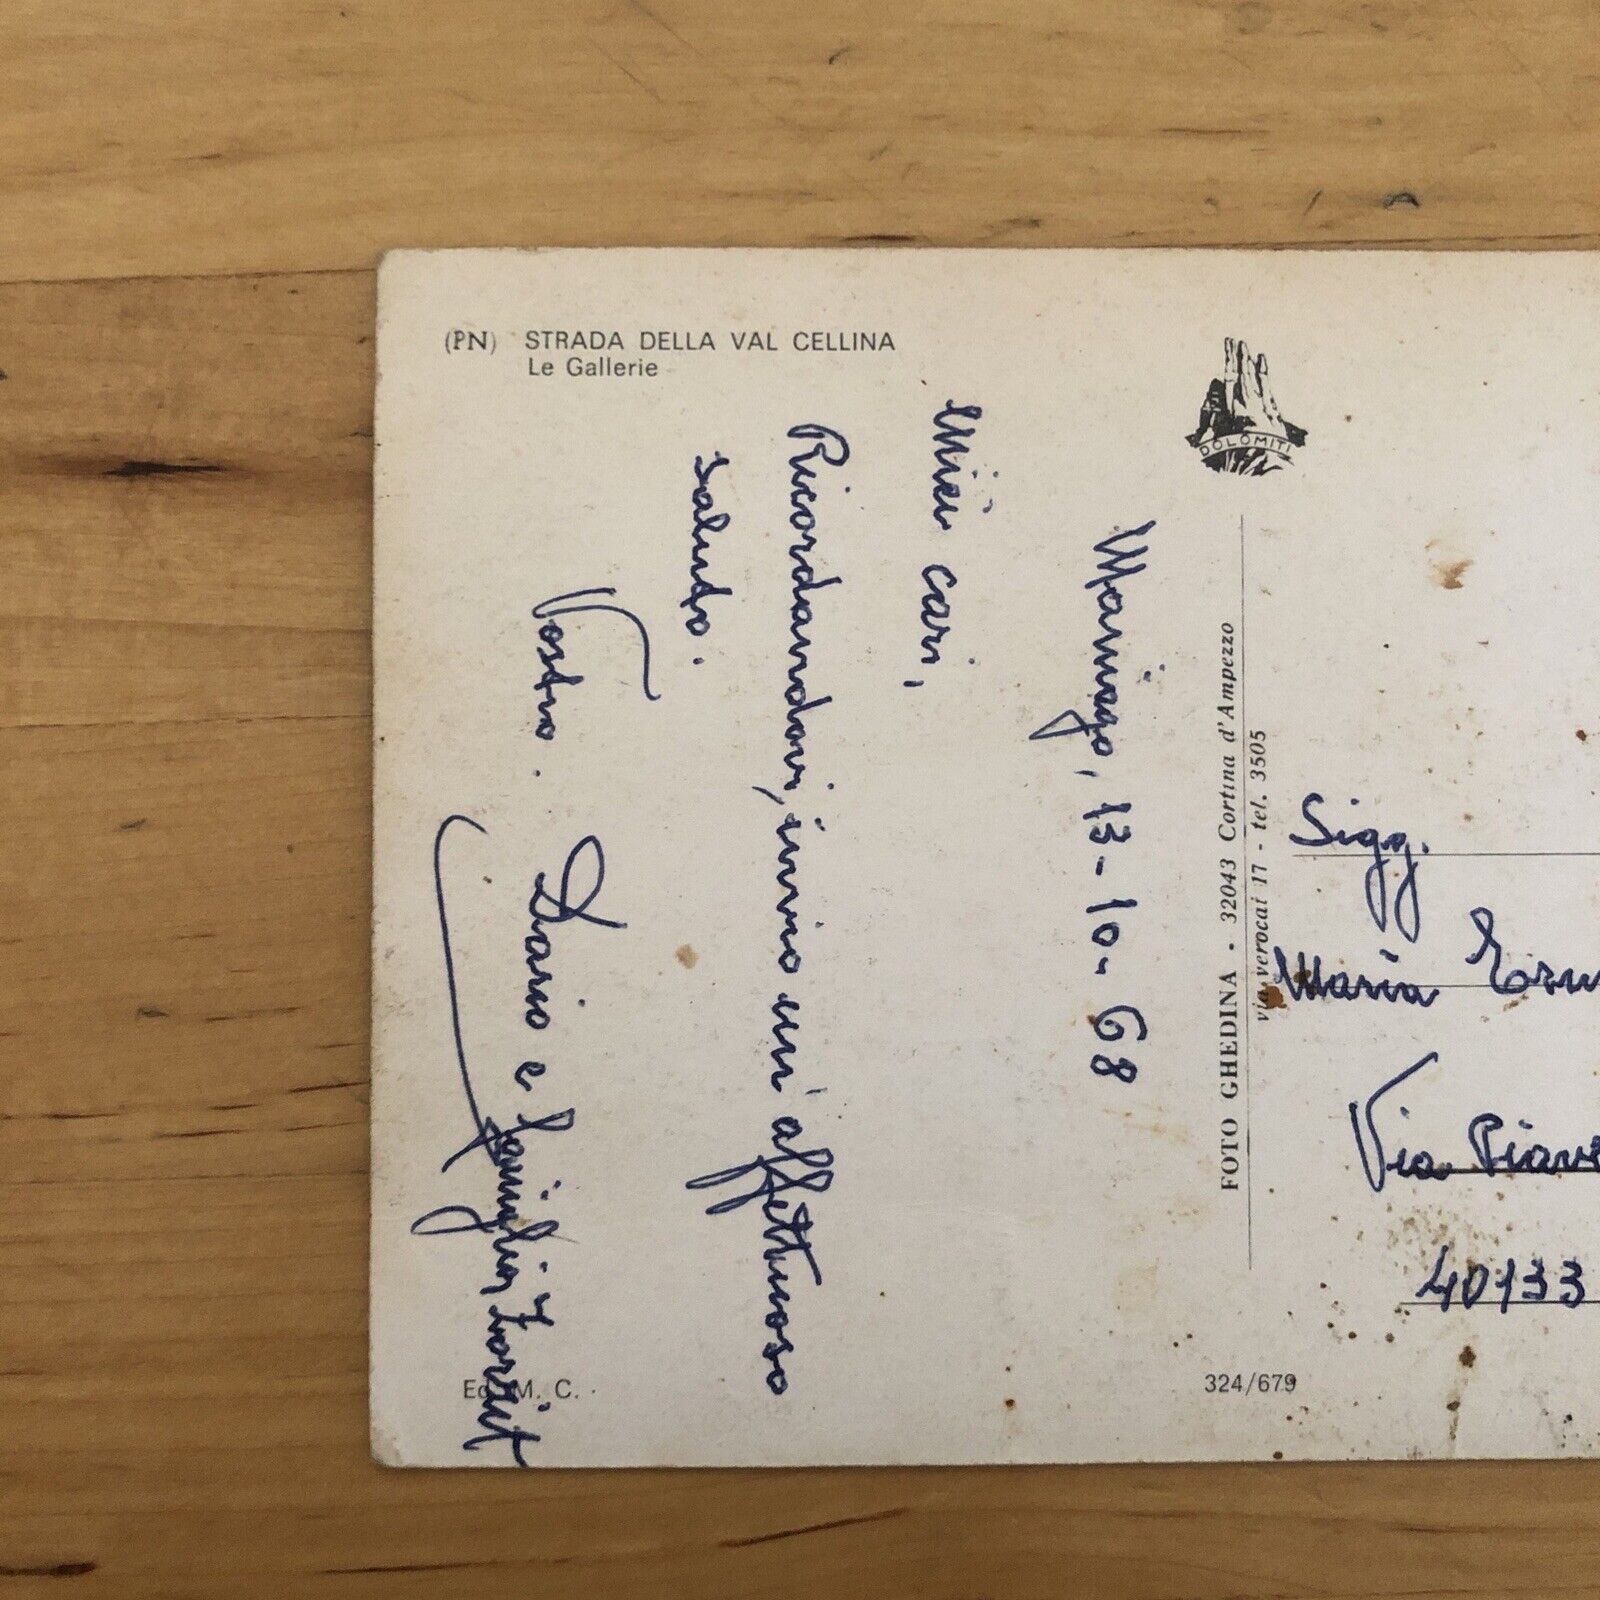 (PN) STRADA DELLA VAL CELLINA
Le Gallerie
DOLOMITI
Maniago, 13-10-68
Miei cari,
Ricordandovi, invio un'affettuoso
saluto.
Vostro. Dario e famiglia
Ed. M. C.
FOTO GHEDINA - 32043 Cortina d'Ampezzo
via verocai 17 - tel. 3505
Sigg.
Maria
Via Piave
40133
324/679